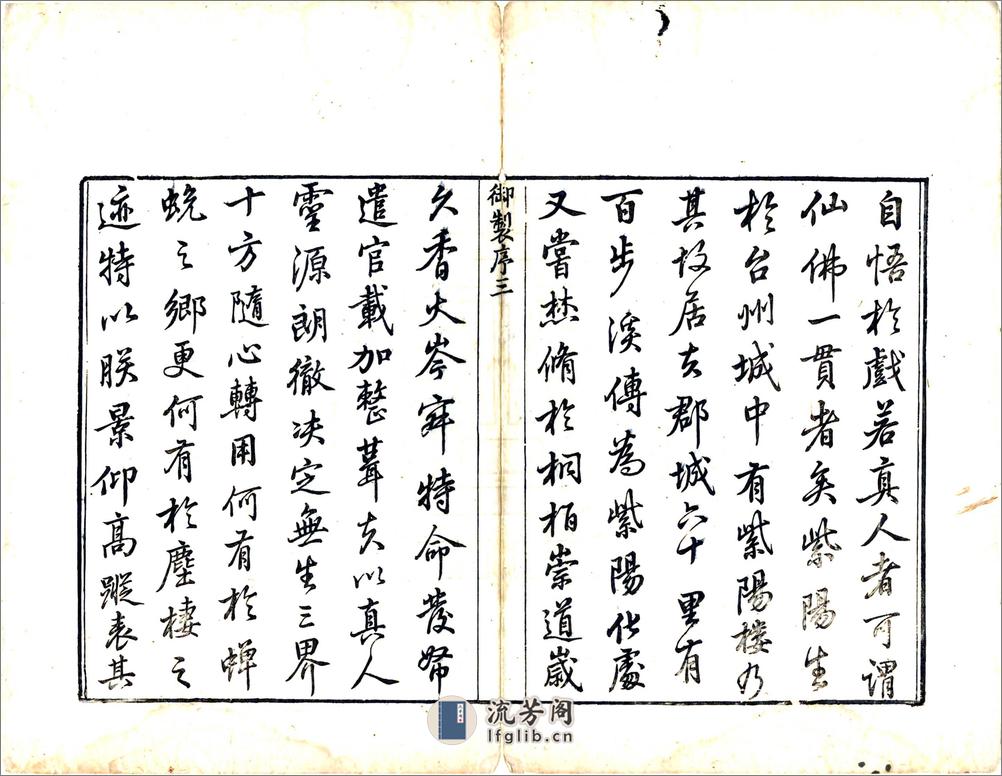 自悟於戲若真人者可謂
仙佛一貫者矣紫陽生
於台州城中有紫陽樓乃
其故居去郡城六十里有
百步溪傳為紫陽化處
又嘗焚脩於桐柏崇道歲
御製序三
久香火岑寂特命發帑
遣官載加整葺夫以真人
靈源朗徹决定無生三界
十方隨心轉用何有於蟬
蛻之鄉更何有於塵棲之
迹特以朕景仰高蹤表其
流芳阁
lfglib.cn